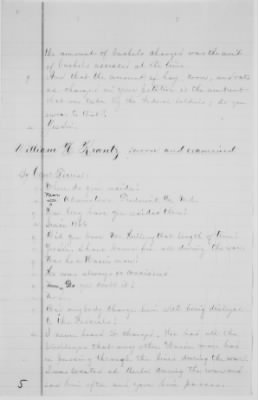 the amount of bushels charged was the amt
of bushels assessed at the time.
Q And that the amount of hay, corn, and oats
as charged in your petition is the amount
that was taken by the Federal soldiers; do you
swear to that?
A Yes sir.
William H. Krantz sworn and examined
Q Where do you reside?
A Adamstown, Frederick Co. Md.
Q How long have you resided there?
A Since 1860
Q Did you know Mr. that length of time?
A Yes sir, I have known him all during the war.
Q Was he a Union man?
A He was always so considered
Q Do you doubt it?
A No sir.
Q Did anybody charge him with being disloyal
to the
A I never heard so charged, He had all the
privileges that any other Union man had
in passing through the lines during the war.
I was located at Berlin during the war and
saw him often and gave him passes.
5